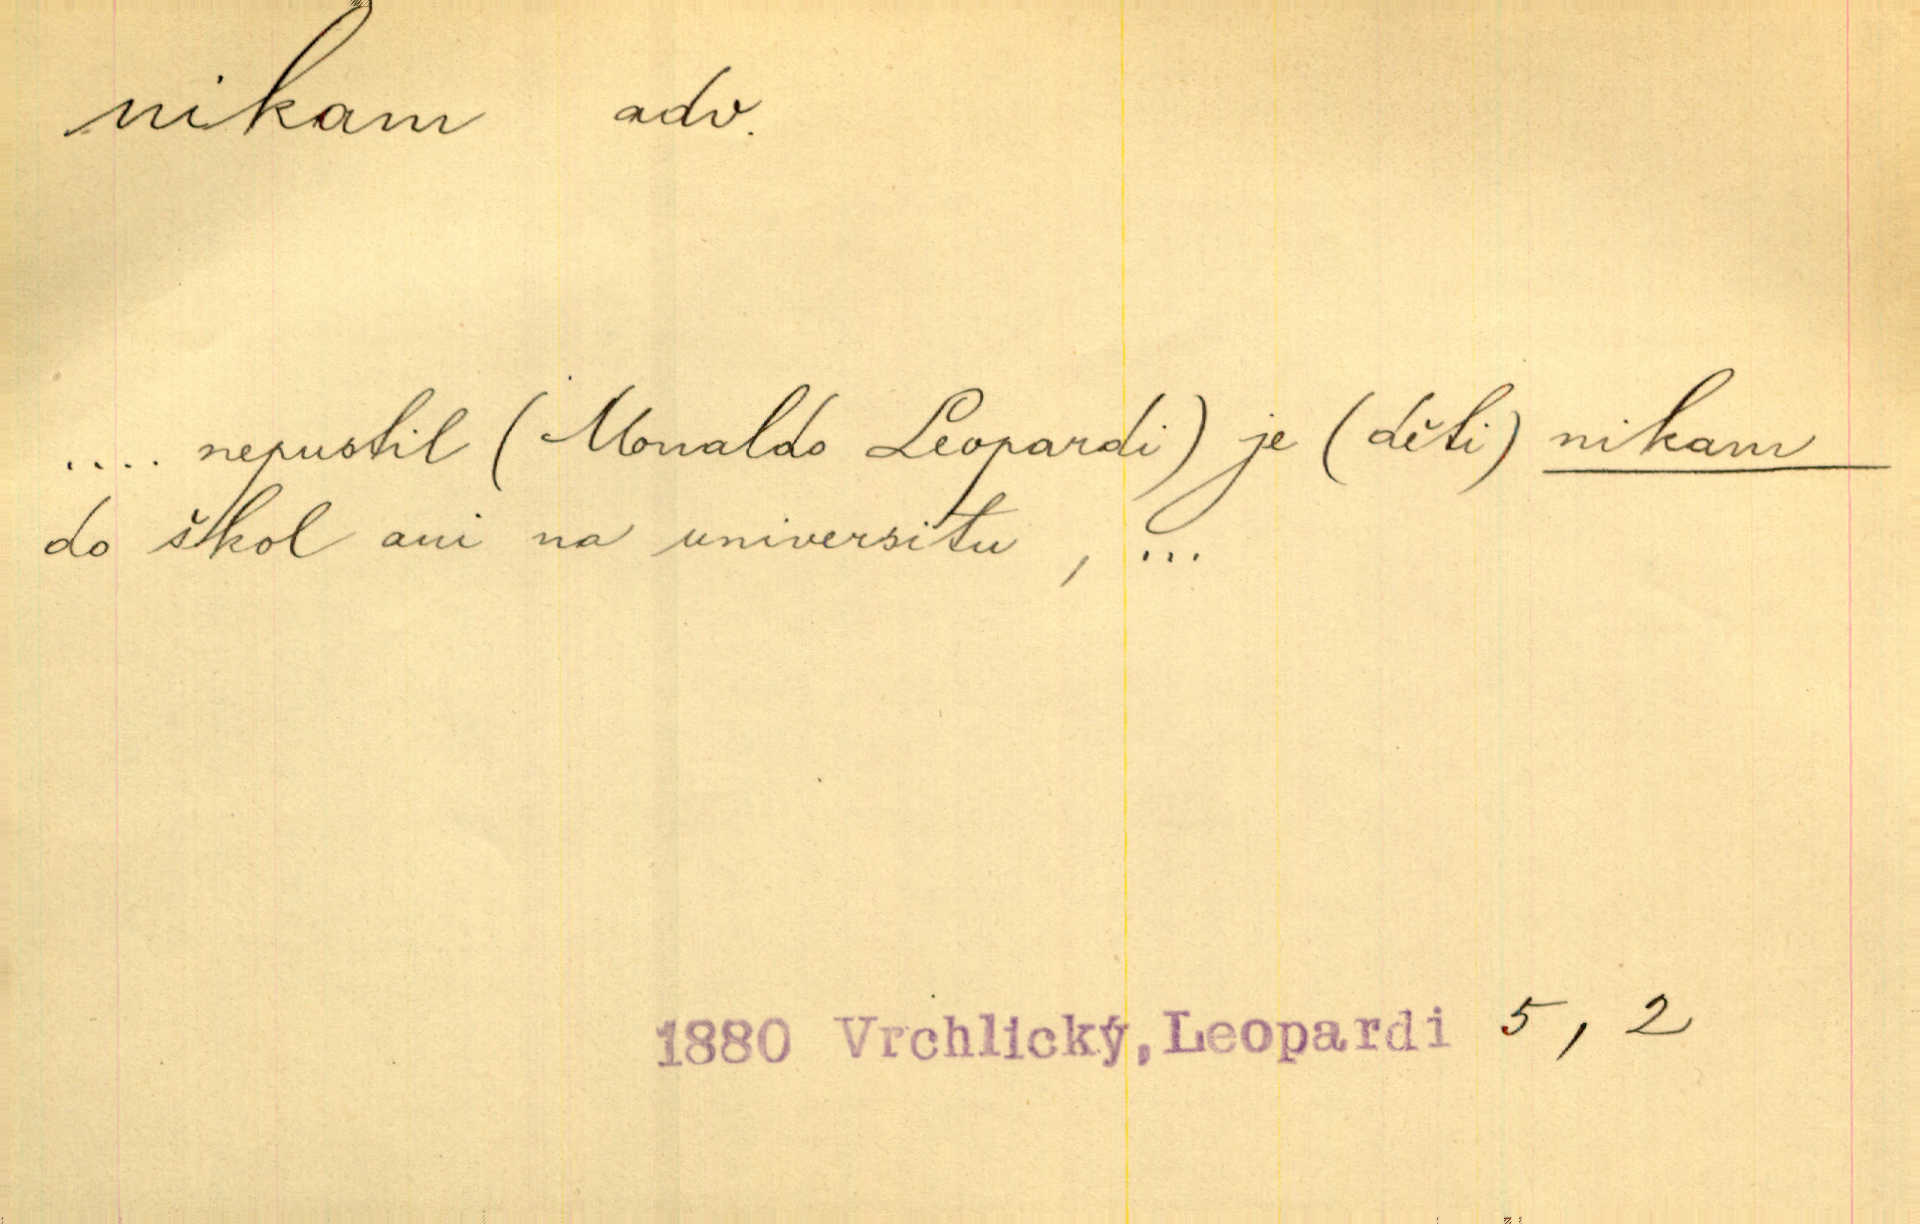 nikam adv.
.... nepustil (Monaldo Leopardi) je (děti) nikam
do škol ani na universitu, ...
1880 Vrchlický, Leopardi 5, 2